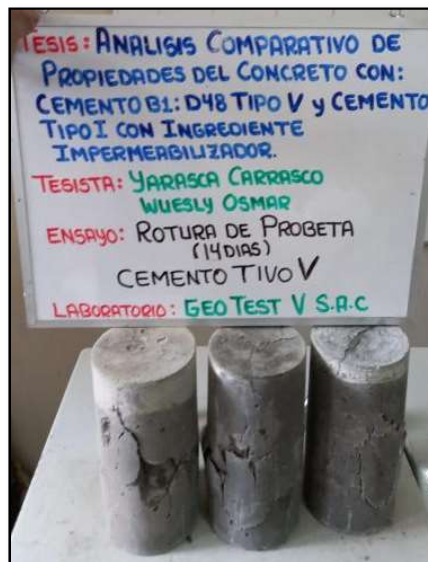 TESIS: ANALISIS COMPARATIVO DE
PROPIEDADES DEL CONCRETO CON:
CEMENTO B1: D48 TIPO V y CEMENTO
TIPO I CON INGREDIENTE
IMPERMEABILIZADOR.
TESISTA: YARASCA CARRASCO
WUESLY OSMAR
ENSAYO: ROTURA DE PROBETA
(14 DIAS)
CEMENTO TIVO V
LABORATORIO: GEO TEST V S.A.C